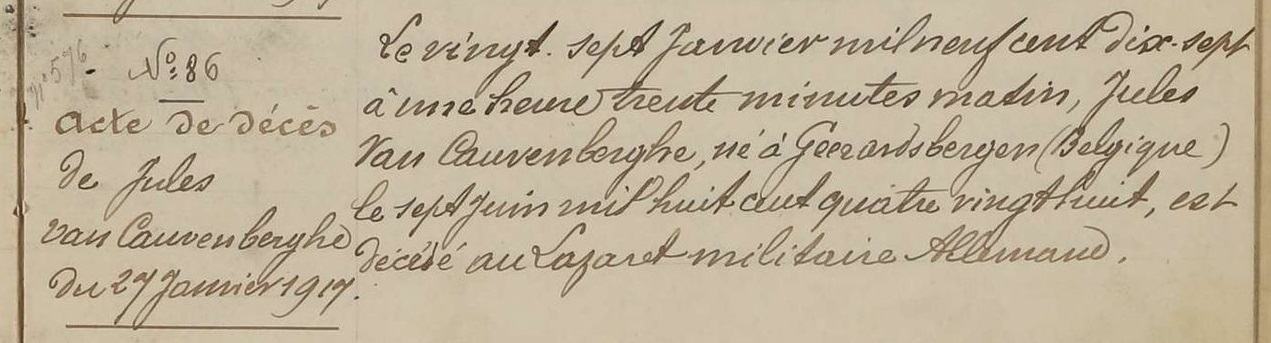 N° 576
N°: 86
acte de décès
de Jules
Van Cauvenberghe
du 27 Janvier 1917.
Le vingt-sept Janvier mil neuf cent dix-sept
à une heure trente minutes matin, Jules
Van Cauvenberghe, né à Geerardsbergen (Belgique)
le sept Juin mil huit cent quatre vingt huit, est
décédé au Lazaret militaire Allemand.